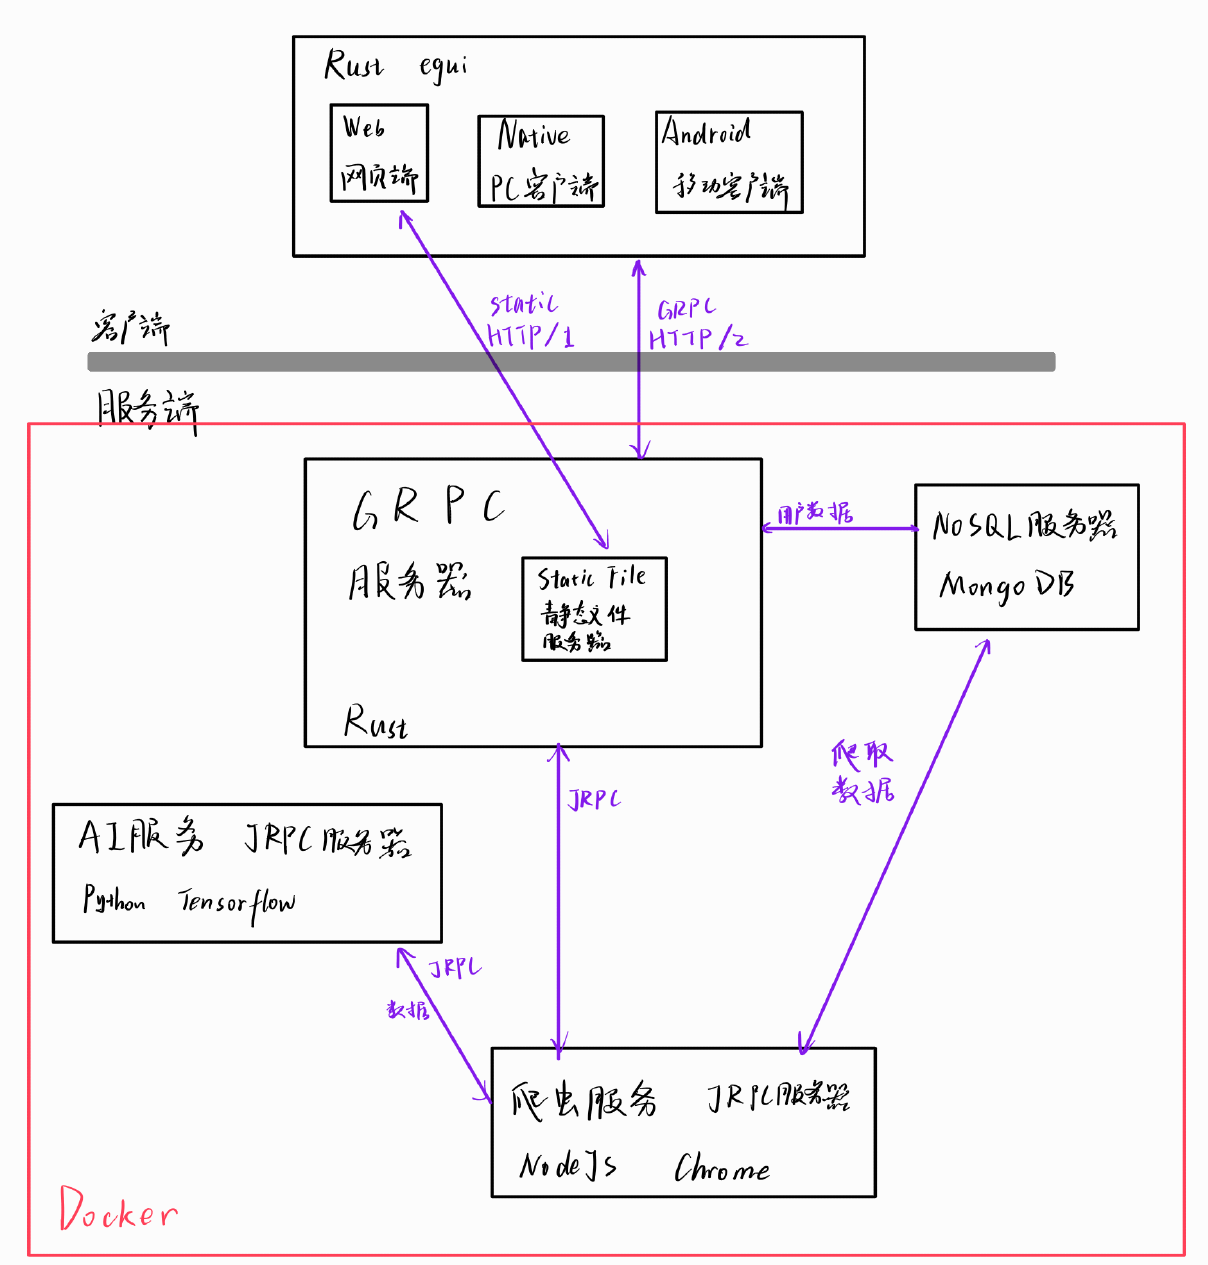 Rust egui
Web
网页端
Native
PC客户端
Android
移动客户端
static
HTTP/1
GRPC
HTTP/2
客户端
服务端
GRPC
服务器
Static File
静态文件
服务器
Rust
用户数据
NoSQL服务器
MongoDB
爬取
数据
JRPC
AI服务 JRPC服务器
Python Tensorflow
JRPC
数据
爬虫服务 JRPC服务器
NodeJS Chrome
Docker